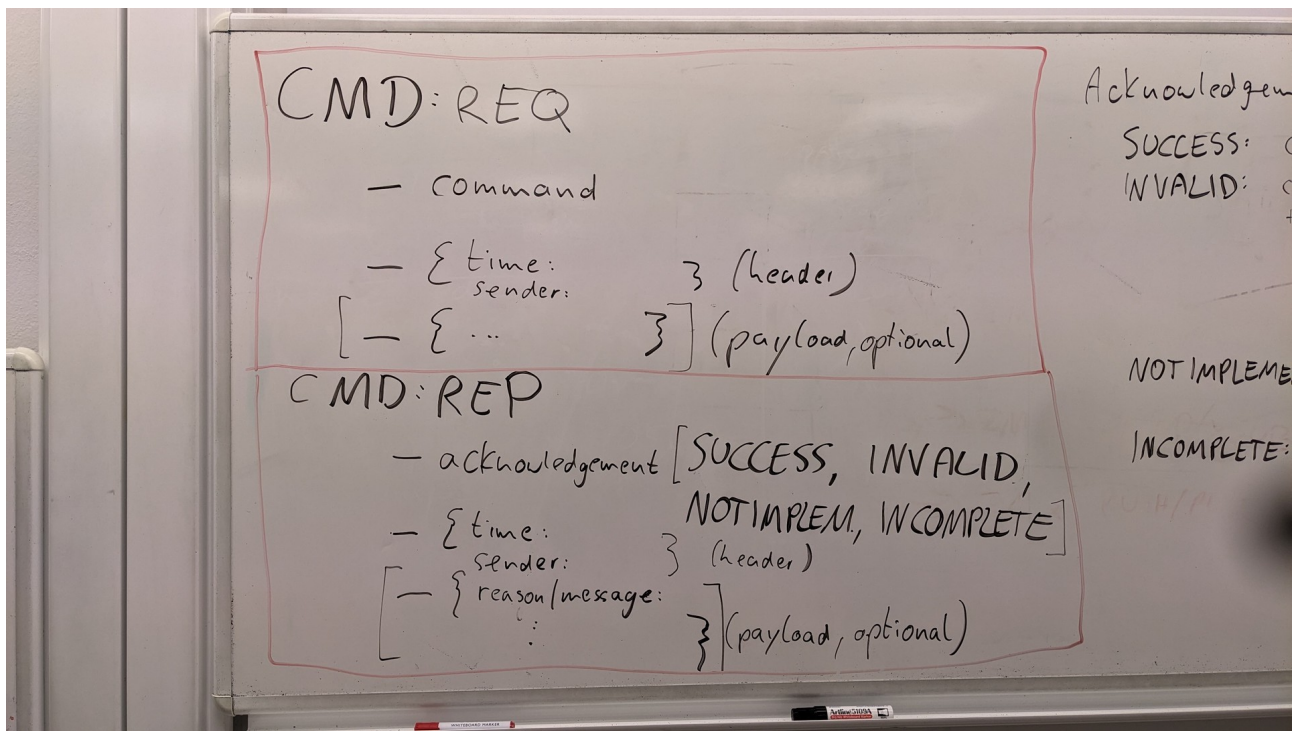 CMD: REQ
— command
— { time:
sender: } (header)
[ — { ... } ] (payload, optional)
CMD: REP
— acknowledgement [SUCCESS, INVALID,
NOTIMPLEM., INCOMPLETE]
— { time:
sender: } (header)
[ — { reason/message:
: } ] (payload, optional)
Acknowledgem
SUCCESS:
INVALID:
NOT IMPLEME
INCOMPLETE:
WHITEBOARD MARKER
Artline 5109A